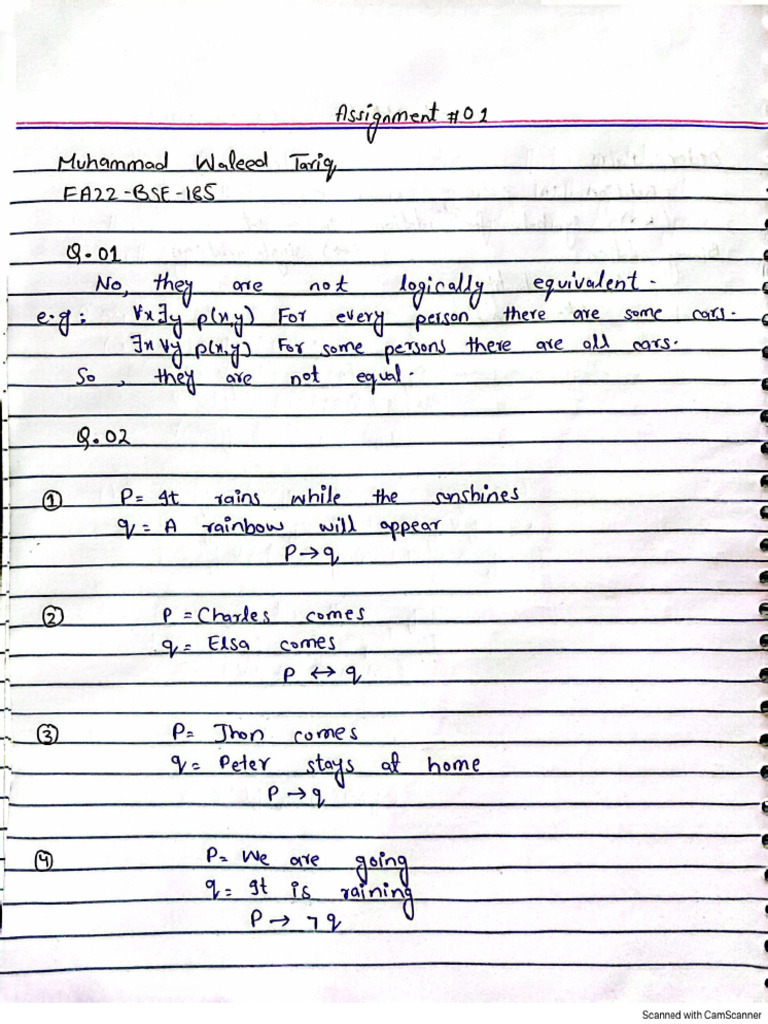 Assignment #01
Muhammad Waleed Tariq
FA22-BSE-185
Q.01
No, they are not logically equivalent.
e.g: ∀x∃y p(x,y) For every person there are some cars.
∃x∀y p(x,y) For some persons there are all cars.
So, they are not equal.
Q.02
① P= It rains while the sunshines
q = A rainbow will appear
P→q
② P = Charles comes
q= Elsa comes
P ↔ q
③ P= Jhon comes
q= Peter stays at home
P→q
④ P= We are going
q= It is raining
P→ ¬q
Scanned with CamScanner